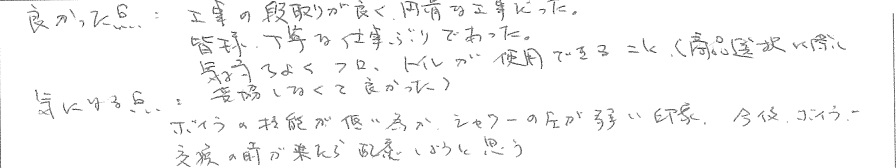 良かった点：工事の段取りが良く、円滑な工事だった。
皆様、丁寧な仕事ぶりであった。
気持ちよくフロ、トイレが使用できること、(商品選択に際し
妥協しなくて良かった)
気になる点：
ボイラの性能が低い為か、シャワーの圧が弱い印象、今後、ボイラー
交換の時が来たら配慮しようと思う